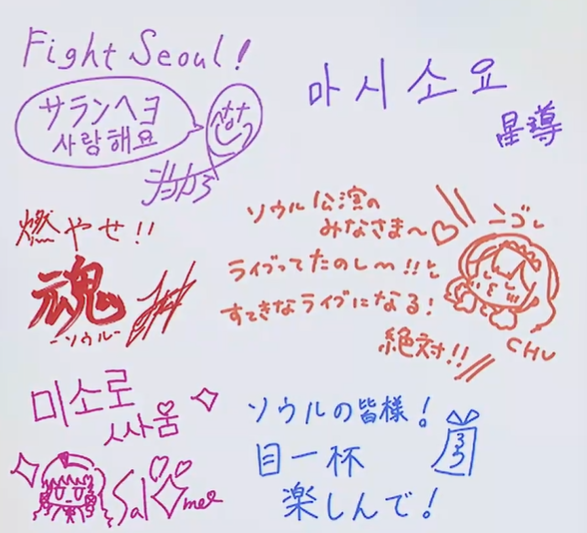 Fight Seoul!
サランヘヨ
사랑해요
마시소요
星導
燃やせ!!
魂
-ソウル-
ソウル公演の
みなさま〜♡
ライブってたのし〜!!と
すてきなライブになる!
絶対!!
CHU
미소로
싸움
Salome
ソウルの皆様!
目一杯
楽しんで!